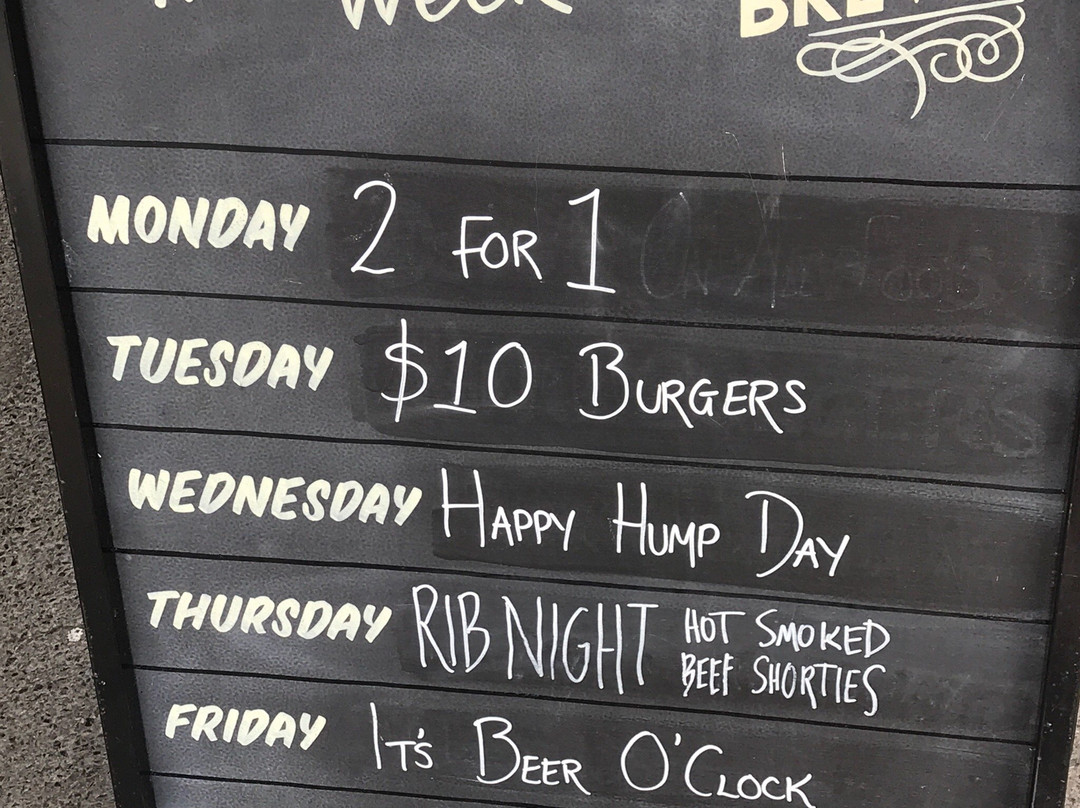 Week
MONDAY 2 FOR 1
TUESDAY $10 BURGERS
WEDNESDAY HAPPY HUMP DAY
THURSDAY RIB NIGHT HOT SMOKED
BEEF SHORTIES
FRIDAY IT'S BEER O'CLOCK